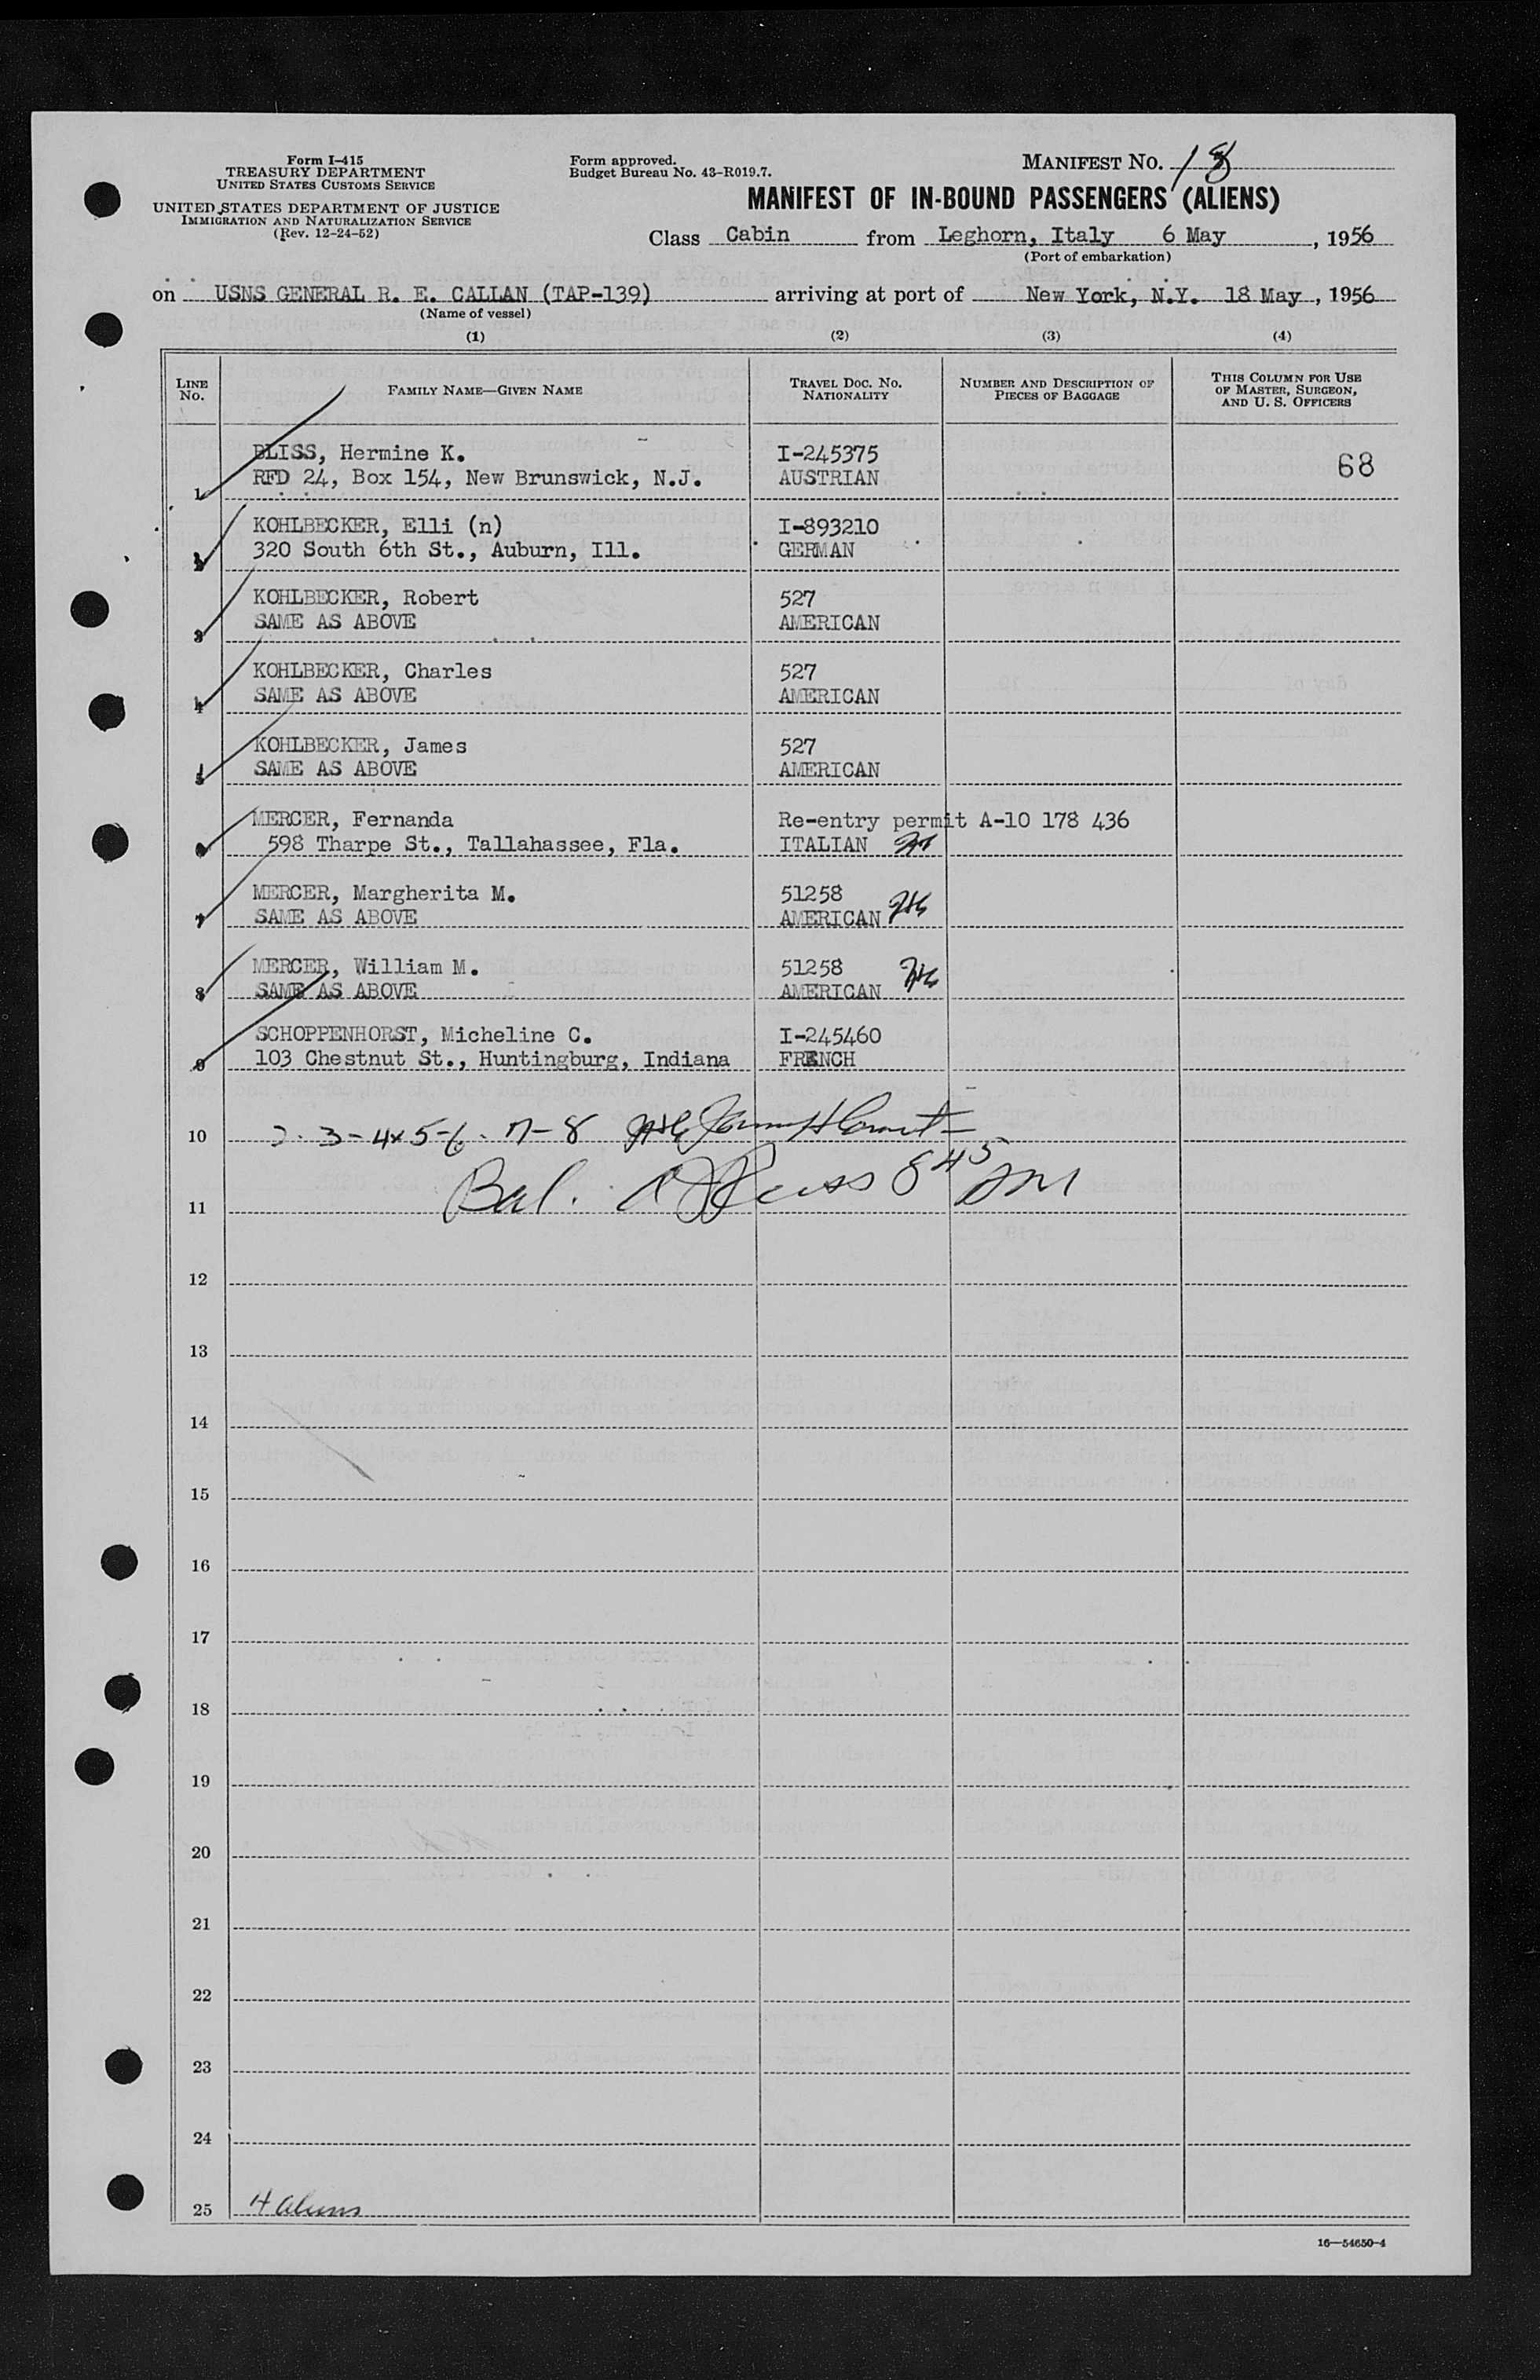 Form I-415
TREASURY DEPARTMENT
UNITED STATES CUSTOMS SERVICE
UNITED STATES DEPARTMENT OF JUSTICE
IMMIGRATION AND NATURALIZATION SERVICE
(Rev. 12-24-52)
Form approved.
Budget Bureau No. 43-R019.7.
MANIFEST No. 18
MANIFEST OF IN-BOUND PASSENGERS (ALIENS)
Class Cabin from Leghorn, Italy 6 May, 1956
(Port of embarkation)
on USNS GENERAL R. E. CALLAN (TAP-139) arriving at port of New York, N.Y. 18 May, 1956
(Name of vessel)
(1) (2) (3) (4)
LINE No. FAMILY NAME—GIVEN NAME TRAVEL DOC. NO. NATIONALITY NUMBER AND DESCRIPTION OF PIECES OF BAGGAGE THIS COLUMN FOR USE OF MASTER, SURGEON, AND U. S. OFFICERS
BLISS, Hermine K. I-245375 68
1 RFD 24, Box 154, New Brunswick, N.J. AUSTRIAN
KOHLBECKER, Elli (n) I-893210
2 320 South 6th St., Auburn, Ill. GERMAN
KOHLBECKER, Robert 527
3 SAME AS ABOVE AMERICAN
KOHLBECKER, Charles 527
4 SAME AS ABOVE AMERICAN
KOHLBECKER, James 527
5 SAME AS ABOVE AMERICAN
MERCER, Fernanda Re-entry permit A-10 178 436
6 598 Tharpe St., Tallahassee, Fla. ITALIAN
MERCER, Margherita M. 51258
7 SAME AS ABOVE AMERICAN
MERCER, William M. 51258
8 SAME AS ABOVE AMERICAN
SCHOPPENHORST, Micheline C. I-245460
9 103 Chestnut St., Huntingburg, Indiana FRENCH
10 2-3-4x5-6-7-8
11 Bal. 845
12
13
14
15
16
17
18
19
20
21
22
23
24
25 4 aliens
16—54650-4